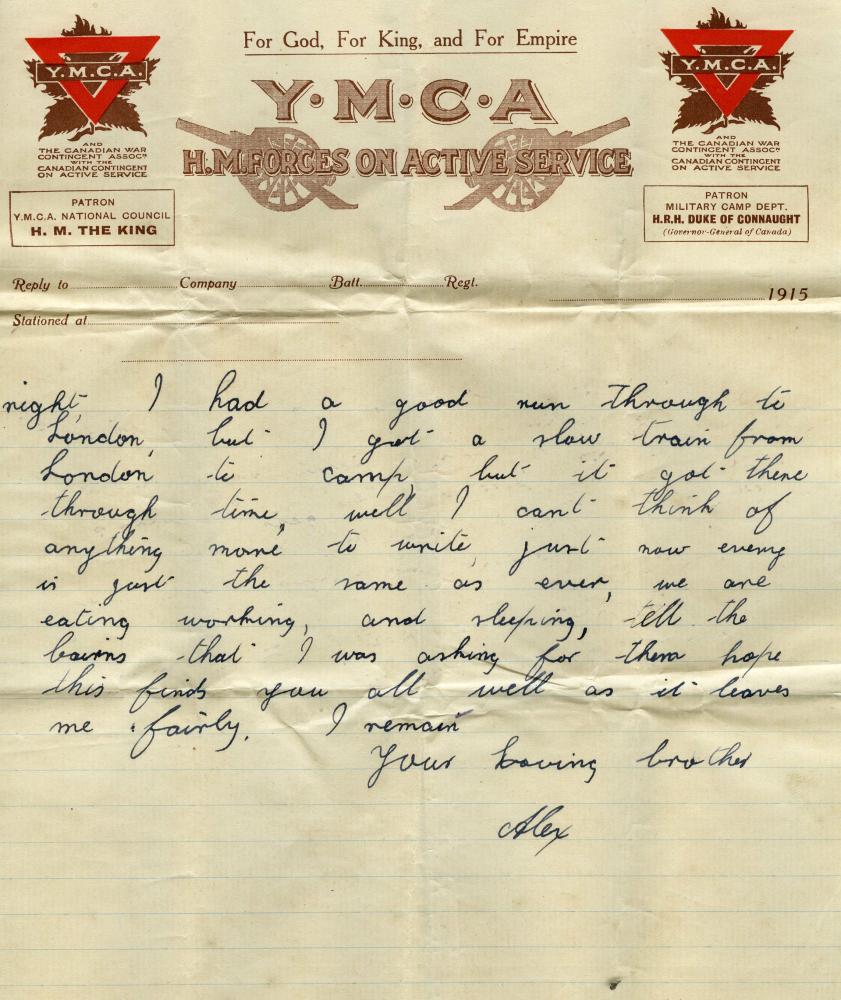 For God, For King, and For Empire
Y·M·C·A
H.M. FORCES ON ACTIVE SERVICE
Y.M.C.A.
AND
THE CANADIAN WAR
CONTINGENT ASSOCN
WITH THE
CANADIAN CONTINGENT
ON ACTIVE SERVICE
PATRON
Y.M.C.A. NATIONAL COUNCIL
H. M. THE KING
Y.M.C.A.
AND
THE CANADIAN WAR
CONTINGENT ASSOCN
WITH THE
CANADIAN CONTINGENT
ON ACTIVE SERVICE
PATRON
MILITARY CAMP DEPT.
H.R.H. DUKE OF CONNAUGHT
(Governor-General of Canada)
Reply to Company Batt. Regt.
1915
Stationed at
night, I had a good run through to
London, but I got a slow train from
London to camp, but it got there
through time, well I cant think of
anything more to write, just now every
is just the same as ever, we are
eating working, and sleeping, tell the
bairns that I was asking for them hope
this finds you all well as it leaves
me fairly. I remain
Your Loving brother
Alex